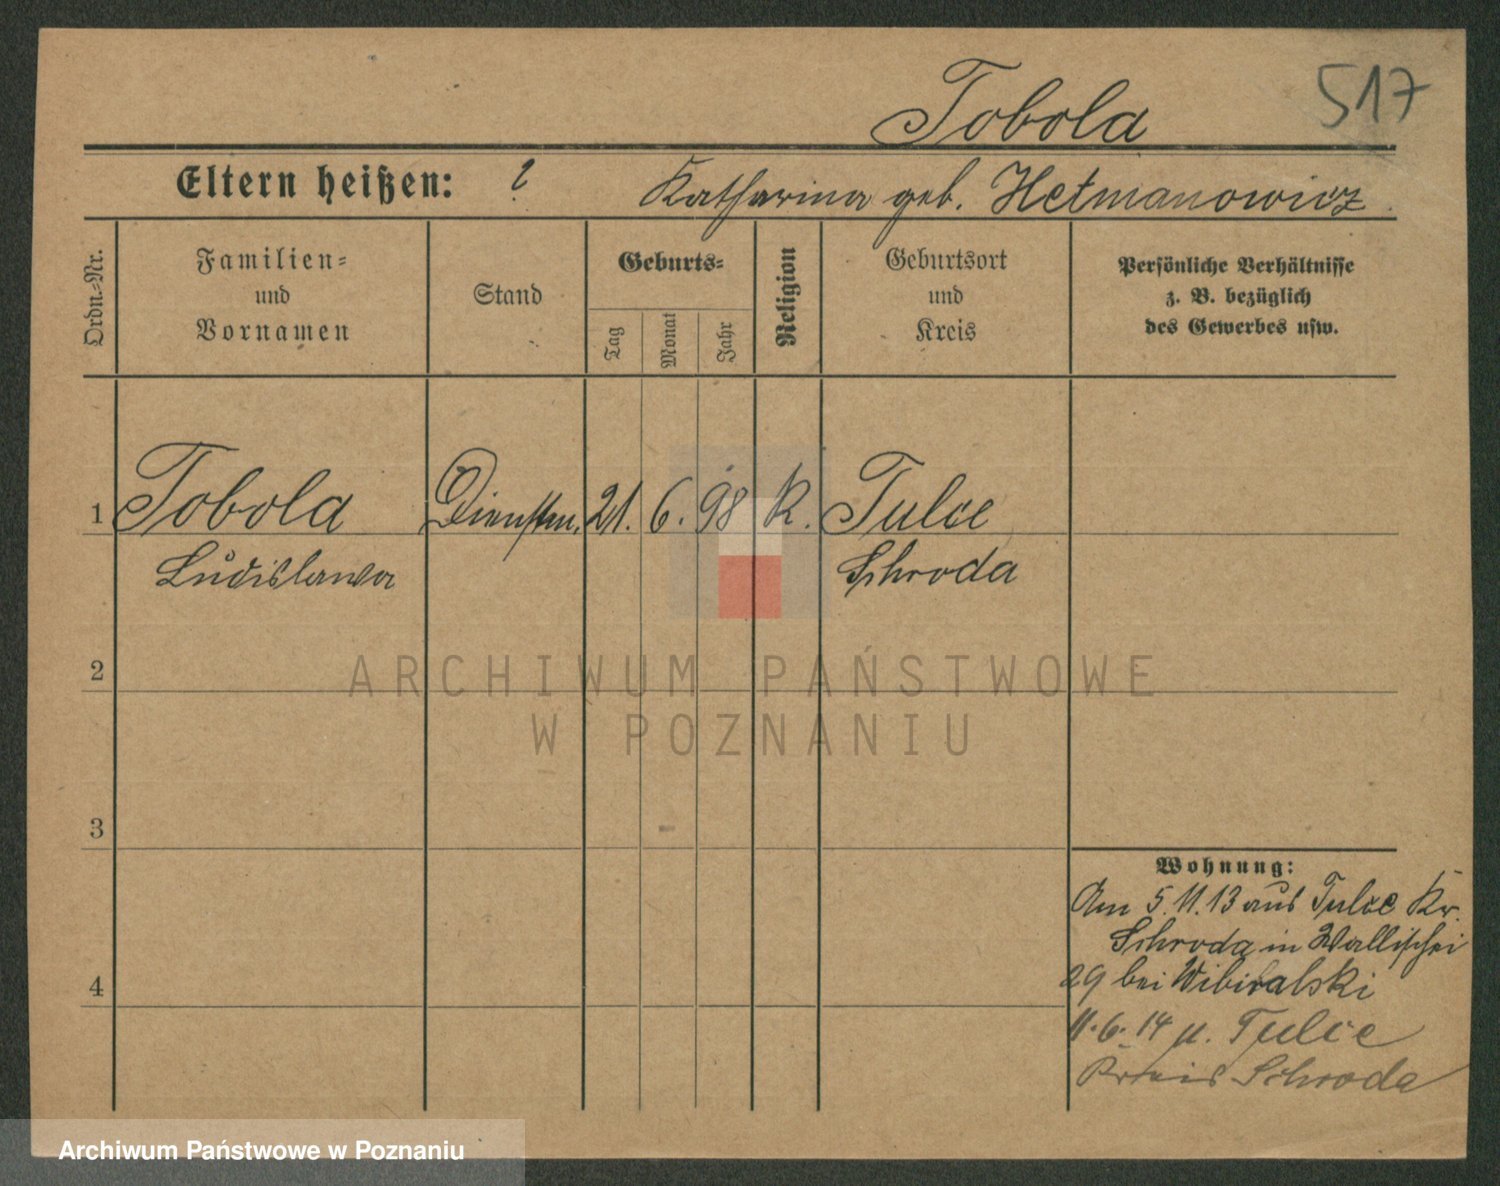 517
Tobola
Eltern heißen: ? Katharina geb. Hetmanowicz
Ordn.-Nr.
Familien-
und
Vornamen
Stand
Geburts-
Tag
Monat
Jahr
Religion
Geburtsort
und
Kreis
Persönliche Verhältnisse
z. B. bezüglich
des Gewerbes usw.
1 Tobola Dienstm. 21. 6. 98 K. Tulce
Ludislawa Schroda
2
3
4
Wohnung:
Am 5.11.13 aus Tulce Kr.
Schroda in Wallischei
29 bei Wibiralski
11.6.14 n. Tulce
Kreis Schroda
ARCHIWUM PAŃSTWOWE
W POZNANIU
Archiwum Państwowe w Poznaniu